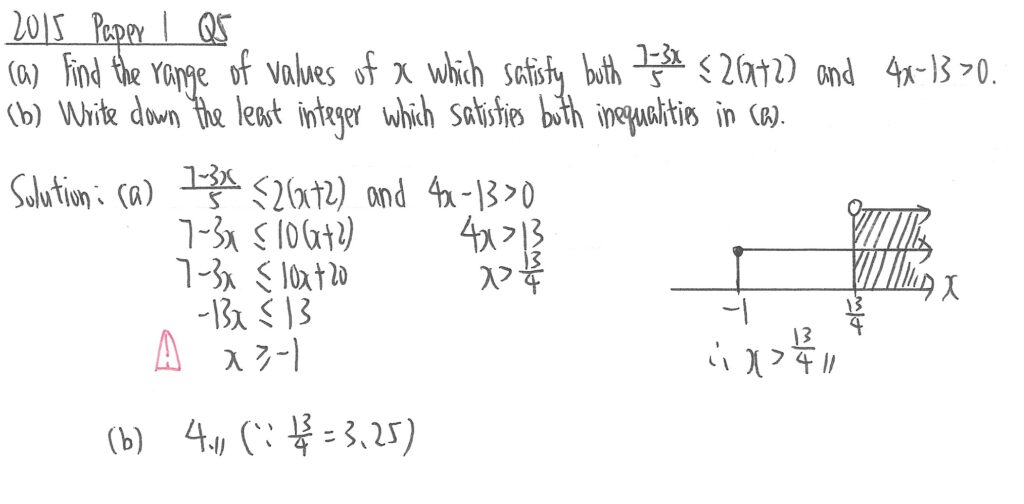 2015 Paper 1 Q5
(a) Find the range of values of x which satisfy both (7-3x)/5 ≤ 2(x+2) and 4x-13>0.
(b) Write down the least integer which satisfies both inequalities in (a).
Solution: (a) (7-3x)/5 ≤ 2(x+2) and 4x-13>0
7-3x ≤ 10(x+2) 4x>13
7-3x ≤ 10x+20 x>13/4
-13x ≤ 13
! x ≥ -1
-1 13/4 x
∴ x > 13/4 //
(b) 4 // (∵ 13/4 = 3.25)